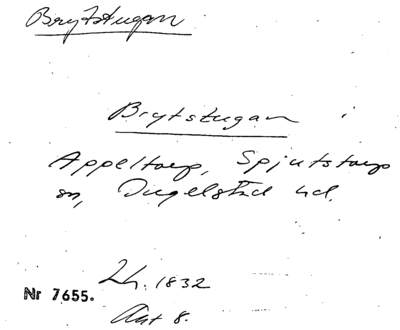 Brytstugan
Brytstugan i
Appeltorp, Spjutstorps
sn, Ingelstad hd.
Lh. 1832
Nr 7655.
Akt 8.